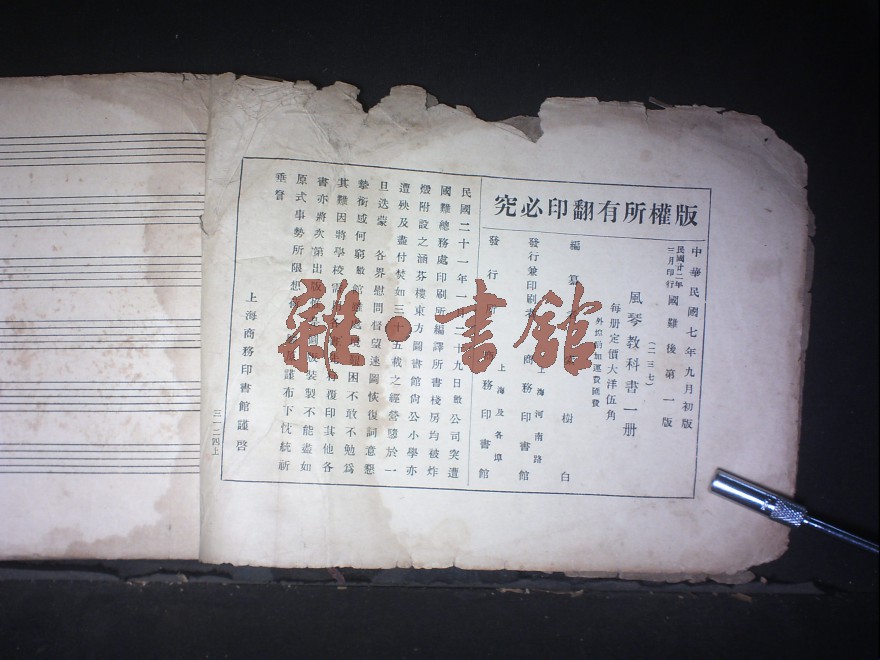 版權所有翻印必究
中華民國七年九月初版
民國廿二年三月印行 國難後第一版
(二三七)
風琴教科書一册
每册定價大洋伍角
外埠酌加運費匯費
編纂 樹白
發行兼印刷者 上海河南路 商務印書館
發行所 上海及各埠 商務印書館
民國二十一年一 二十九日敝公司突遭
國難總務處印刷所編譯所書棧房均被炸
燬附設之涵芬樓東方圖書館尙公小學亦
遭殃及盡付焚如三十五載之經營隳於一
旦迭蒙 各界慰問督望速圖恢復詞意懇
摯銜感何窮敝館 處 困不敢不勉爲
其難因將學校 覆印其他各
書亦將次第出版 裝製不能盡如
原式事勢所限想 謹布下忱統祈
垂詧
上海商務印書館謹啓
三一二四上
雜·書館